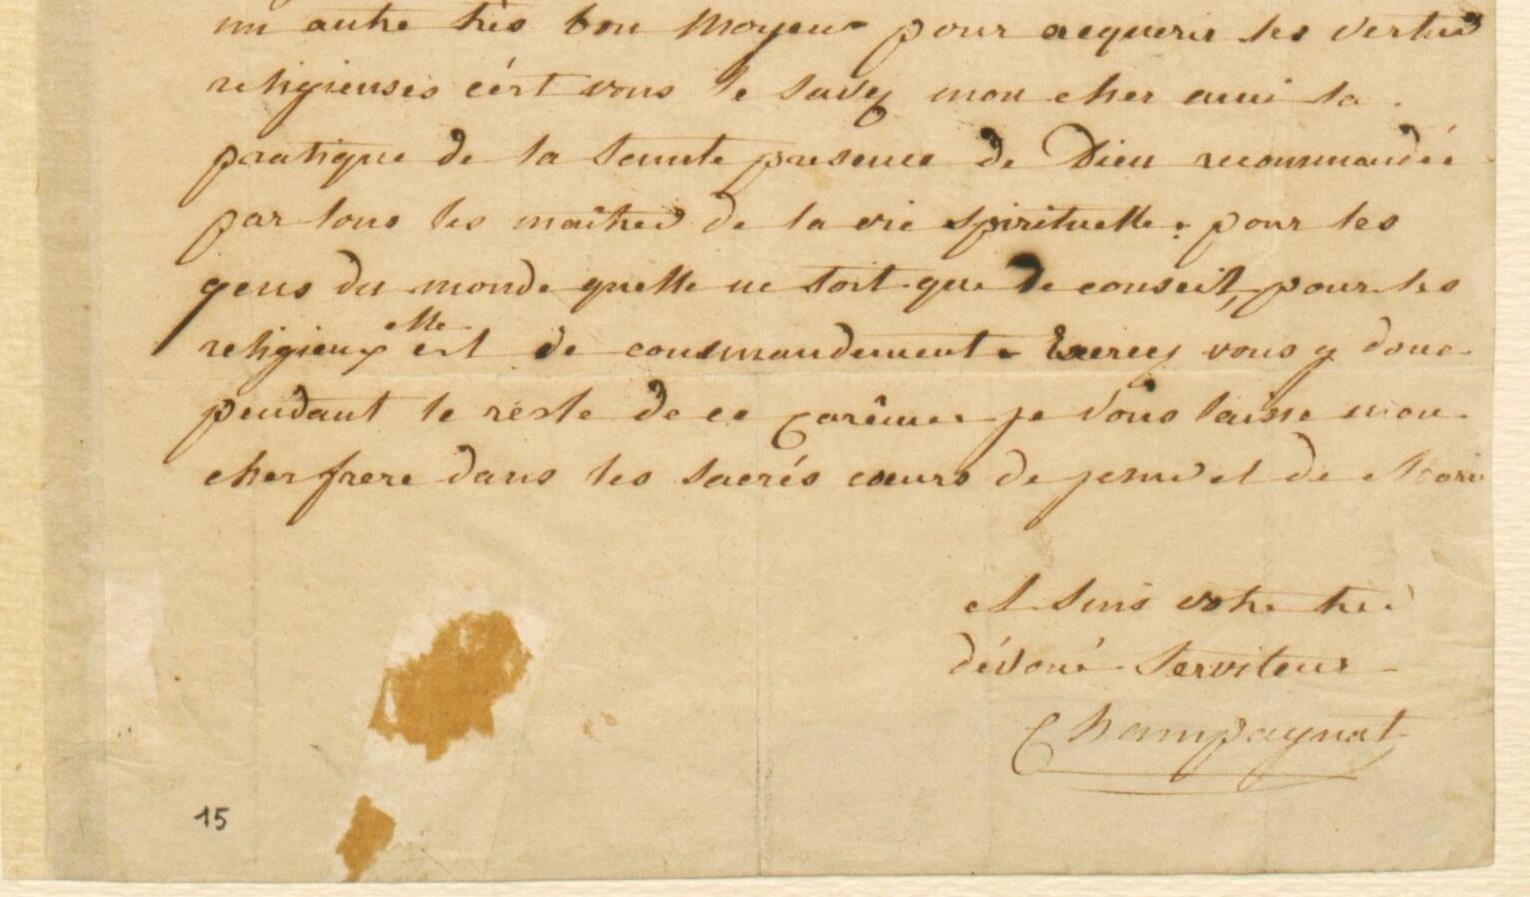 un autre très bon moyen pour acquerir les vertus
religieuses c'ést vous le savez mon cher ami la
pratique de la sainte presence de Dieu recommandée
par tous les maîtres de la vie spirituelle : pour les
gens du monde quelle ne soit que de conseil, pour les
religieux elle est de commandement. Exercez vous y donc
pendant le reste de ce Carême. je vous laisse mon
cher frere dans les sacrés cœurs de jesus et de Marie
et suis votre tres
dévoué serviteur
Champagnat
15